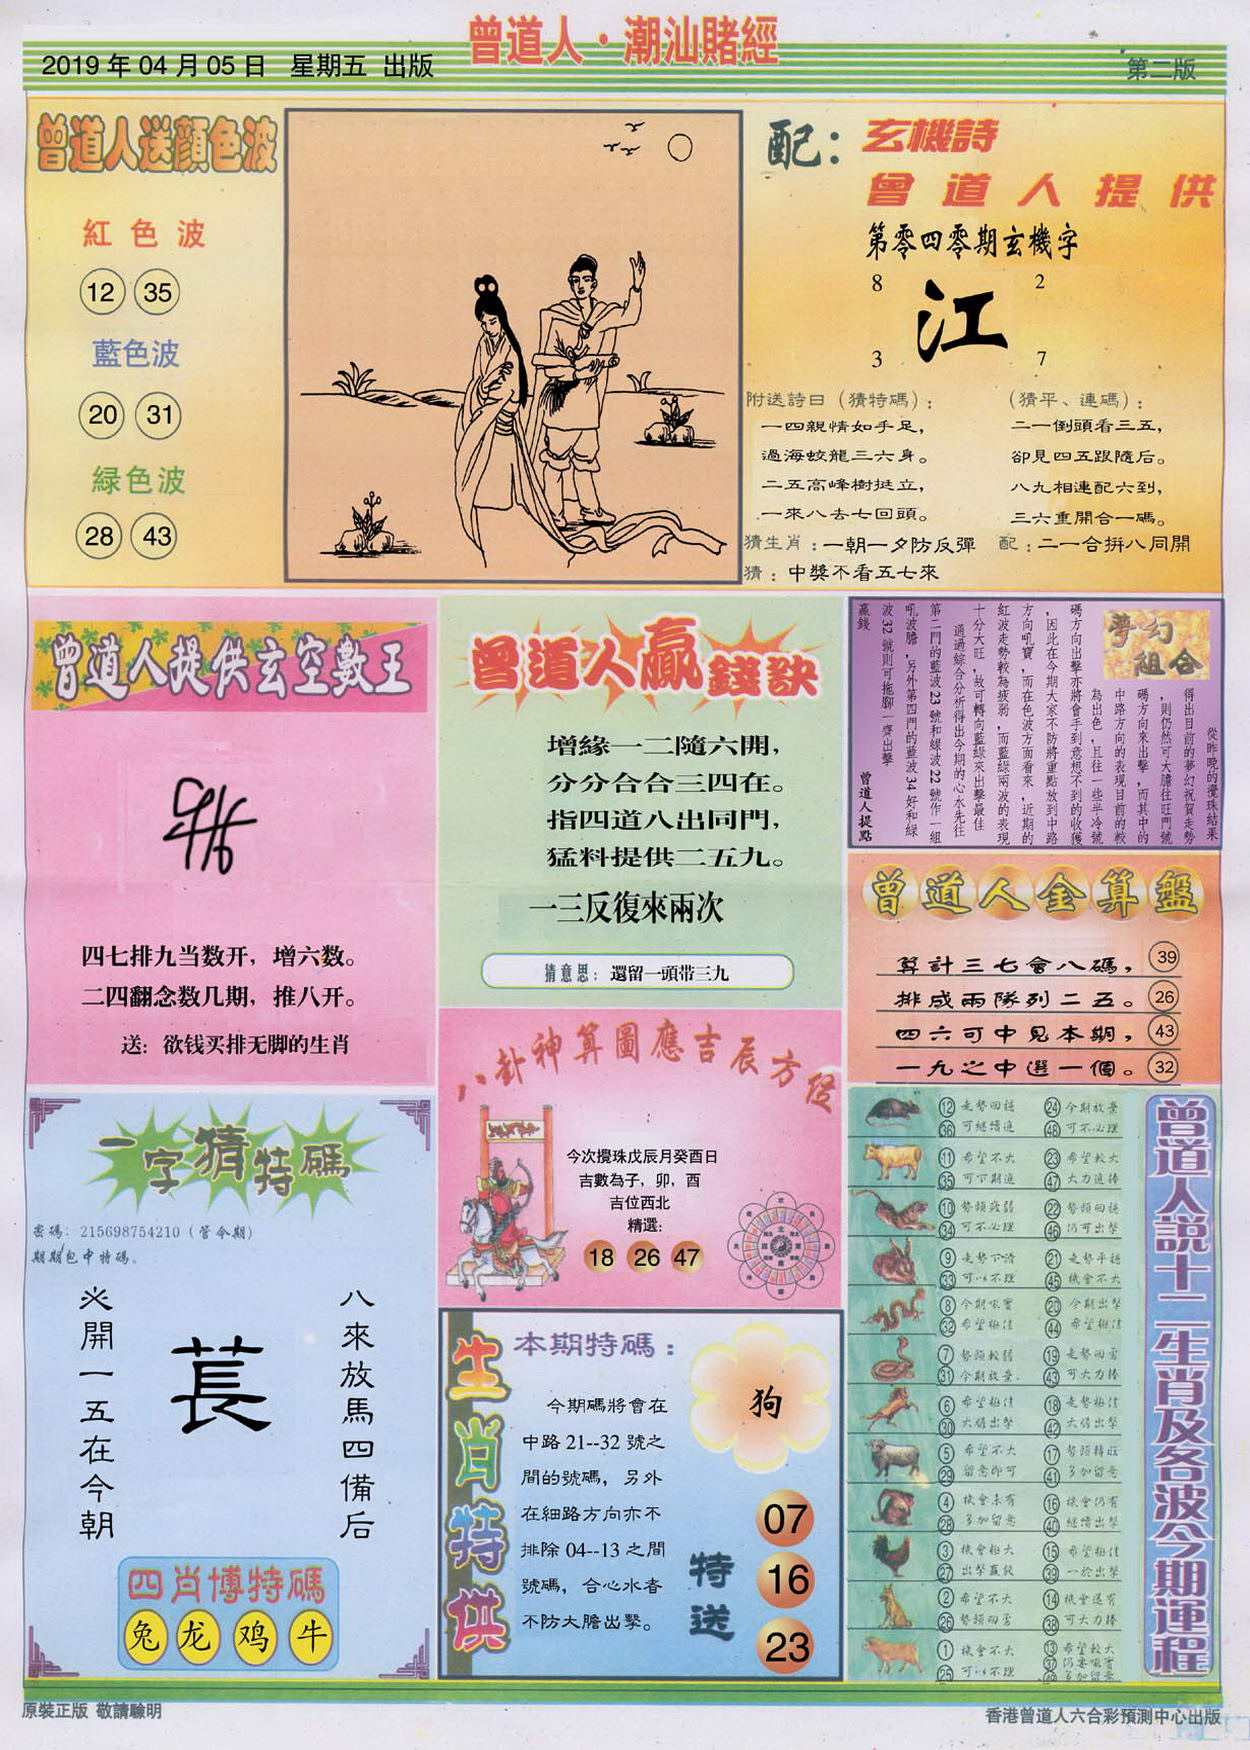 曾道人·潮汕賭經
2019年04月05日 星期五 出版
第二版
曾道人送顔色波
紅色波
12 35
藍色波
20 31
緑色波
28 43
配：玄機詩
曾道人提供
第零四零期玄機字
8 2
江
3 7
附送詩曰（猜特碼）：
一四親情如手足，
過海蛟龍三六身。
二五高峰樹挺立，
一來八去七回頭。
（猜平、連碼）：
二一倒頭看三五，
卻見四五跟隨后。
八九相連配六到，
三六重開合一碼。
猜生肖：一朝一夕防反彈 配：二一合拼八同開
猜：中獎不看五七來
曾道人提供玄空數王
四七排九当数开，增六数。
二四翻念数几期，推八开。
送：欲钱买排无脚的生肖
曾道人贏錢訣
增緣一二隨六開，
分分合合三四在。
指四道八出同門，
猛料提供二五九。
一三反復來兩次
猜意思：還留一頭带三九
夢幻組合
從昨晚的攪珠結果
得出目前的夢幻祝賀走勢
，則仍然可大膽往旺門號
碼方向來出擊，而其中的
中路方向的表現目前的較
為出色，且往一些半冷號
碼方向出擊亦將會手到意想不到的收獲
，因此在今期大家不防將重點放到中路
方向吼寶，而在色波方面看來，近期的
紅波走勢較為疲弱，而藍綠兩波的表現
十分大旺，故可轉向藍綠來出擊最佳
通過綜合分析得出今期的心水先往
第二門的藍波23號和緑波22號作一組
吼波膽，另外第四門的藍波34好和緑
波32號則可拖腳一齊出擊
贏錢
曾道人提點
曾道人金算盤
算計三七會八碼， 39
排成兩隊列二五。 26
四六可中見本期， 43
一九之中選一個。 32
八卦神算圖應吉辰方位
今次攪珠戊辰月癸酉日
吉數為子，卯，酉
吉位西北
精選：
18 26 47
一字猜特碼
密碼：215698754210（管今期）
期期包中特碼。
八來放馬四備后
萇
※開一五在今朝
四肖博特碼
兔 龙 鸡 牛
生肖特供
本期特碼：
狗
今期碼將會在
中路21--32號之
間的號碼，另外
在細路方向亦不
排除04--13之間
號碼，合心水者
不防大膽出擊。
特送
07
16
23
曾道人説十二生肖及各波今期運程
12 走勢回穩 24 今期放棄
36 可繼續追 48 可不必理
11 希望不大 23 希望較大
35 可下期追 47 大力追棒
10 勢頭疲弱 22 勢頭回穩
34 可不必理 46 仍可出擊
9 走勢下滑 21 走勢平穩
33 可以不理 45 機會不大
8 今期吼寶 20 今期出擊
32 希望極佳 44 希望極佳
7 勢頭較弱 19 走勢回霛
31 今期放棄 43 可大力棒
6 希望極佳 18 走勢極佳
30 大膽出擊 42 大膽出擊
5 希望不大 17 勢頭轉旺
29 留意即可 41 多加留意
4 機會未有 16 機會仍有
28 多加留意 40 繼續出擊
3 機會極大 15 希望極佳
27 出擊贏錢 39 一於出擊
2 希望不大 14 機會還有
26 勢頭回 38 可大力棒
1 機會不大 13 希望較大
25 可以不理 37
49 多加留意
原裝正版 敬請驗明
香港曾道人六合彩預測中心出版